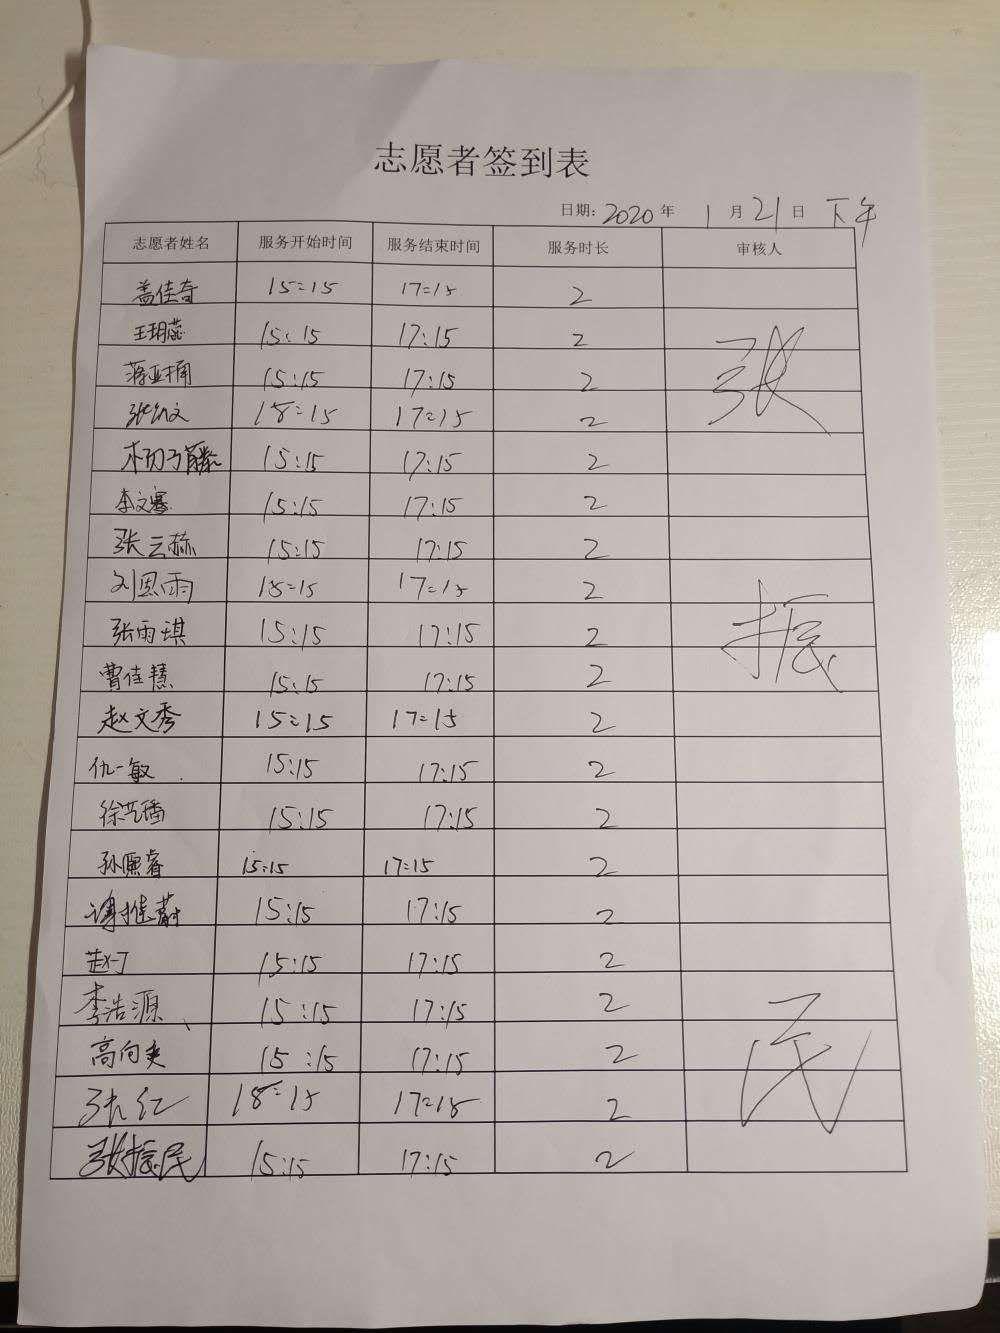 志愿者签到表
日期：2020年 1月21日 下午
志愿者姓名 服务开始时间 服务结束时间 服务时长 审核人
盖佳奇 15:15 17:15 2
王玥蕊 15:15 17:15 2
蒋亚楠 15:15 17:15 2 张
15:15 17:15 2
15:15 17:15 2
李文骞 15:15 17:15 2
张云赫 15:15 17:15 2
刘恩雨 15:15 17:15 2
张雨琪 15:15 17:15 2 振
曹佳慧 15:15 17:15 2
赵文秀 15:15 17:15 2
仇一敏 15:15 17:15 2
徐艺璠 15:15 17:15 2
孙熙睿 15:15 17:15 2
15:15 17:15 2
赵一丁 15:15 17:15 2
李浩源 15:15 17:15 2
高向爽 15:15 17:15 2 民
张红 15:15 17:15 2
张振民 15:15 17:15 2